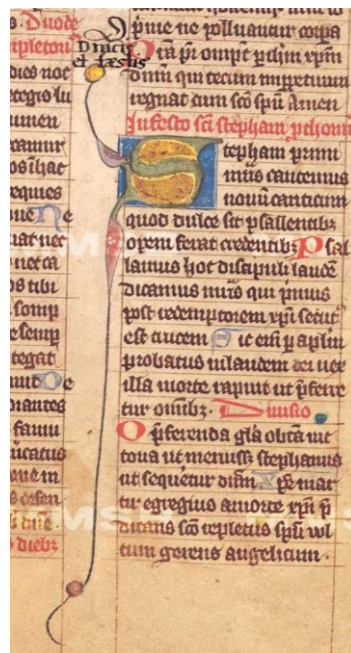 s. Duode
pletoriū
dies noc
regis lu
lumen
requies
uat nec
nec ca
os tibi
somp
semp
tegat
orantes
famu
ducatus
que in
diebȝ
D nicis
et festis
p̄uie ne polluantur corpa
P̄ta pr̄ omp̄t p̄ dn̄m xp̄m
dn̄m qui tecum inp̄petuum
regnat cum sc̄o sp̄u Amen
In festo sc̄i stephani p̄thom̄
Stephani primi
mr̄is cantemus
nouū canticum
quod dulce sit psallentibȝ
opem ferat credentibȝ Psal
lamus hoc discipuli laudē
dicamus mr̄is qui primus
post redemptorem xp̄m secut᷒
est crucem Hic eni p̄ aplm̄
probatus in laudem dei uex
illa morte rapuit ut p̄ferre
tur omibȝ. Diuisio
O p̄ferenda gl̄a bt̄a uic
toria ut meruiss̄ stephanus
ut sequeretur dn̄m Ipe mar
tyr egregius amore xp̄i p̄
dicans sc̄o repletus sp̄u uul
tum gerens angelicum.